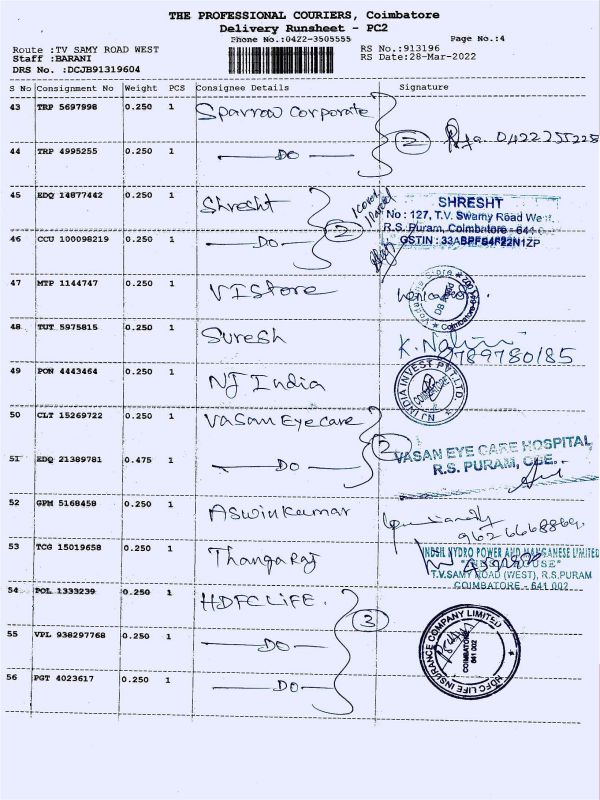 THE PROFESSIONAL COURIERS, Coimbatore
Delivery Runsheet - PC2
Phone No.:0422-3505555
Page No.:4
Route :TV SAMY ROAD WEST
RS No.:913196
Staff :BARANI
RS Date:28-Mar-2022
DRS No. :DCJB91319604
S No Consignment No Weight PCS Consignee Details Signature
43 TRP 5697998 0.250 1 Sparrow Corporate
2
44 TRP 4995255 0.250 1 DO
45 EDQ 14877442 0.250 1 Shresht
2
1 cover
1 Parcel
SHRESHT
No : 127, T.V. Swamy Road West,
R.S. Puram, Coimbatore - 641
GSTIN :
46 CCU 100098219 0.250 1 DO
47 MTP 1144747 0.250 1 VIStore
48 TUT 5975815 0.250 1 Suresh
9789780185
49 PON 4443464 0.250 1 NJ India
NJ INDIA INVEST PVT LTD.
COIMBATORE
50 CLT 15269722 0.250 1 Vasan Eye care
2
VASAN EYE CARE HOSPITAL
R.S. PURAM, CBE.
51 EDQ 21389781 0.475 1 DO
52 GPM 5168458 0.250 1 Aswin kumar
53 TCG 15019658 0.250 1 Thangaraj
INDSIL HYDRO POWER AND MANGANESE LIMITED
"INDSIL HOUSE"
T.V.SAMY ROAD (WEST), R.S.PURAM
COIMBATORE - 641 002
54 POL 1333239 0.250 1 HDFC LIFE.
3
HDFC LIFE INSURANCE COMPANY LIMITED
COIMBATORE
641 002
55 VPL 938297768 0.250 1 DO
56 PGT 4023617 0.250 1 DO